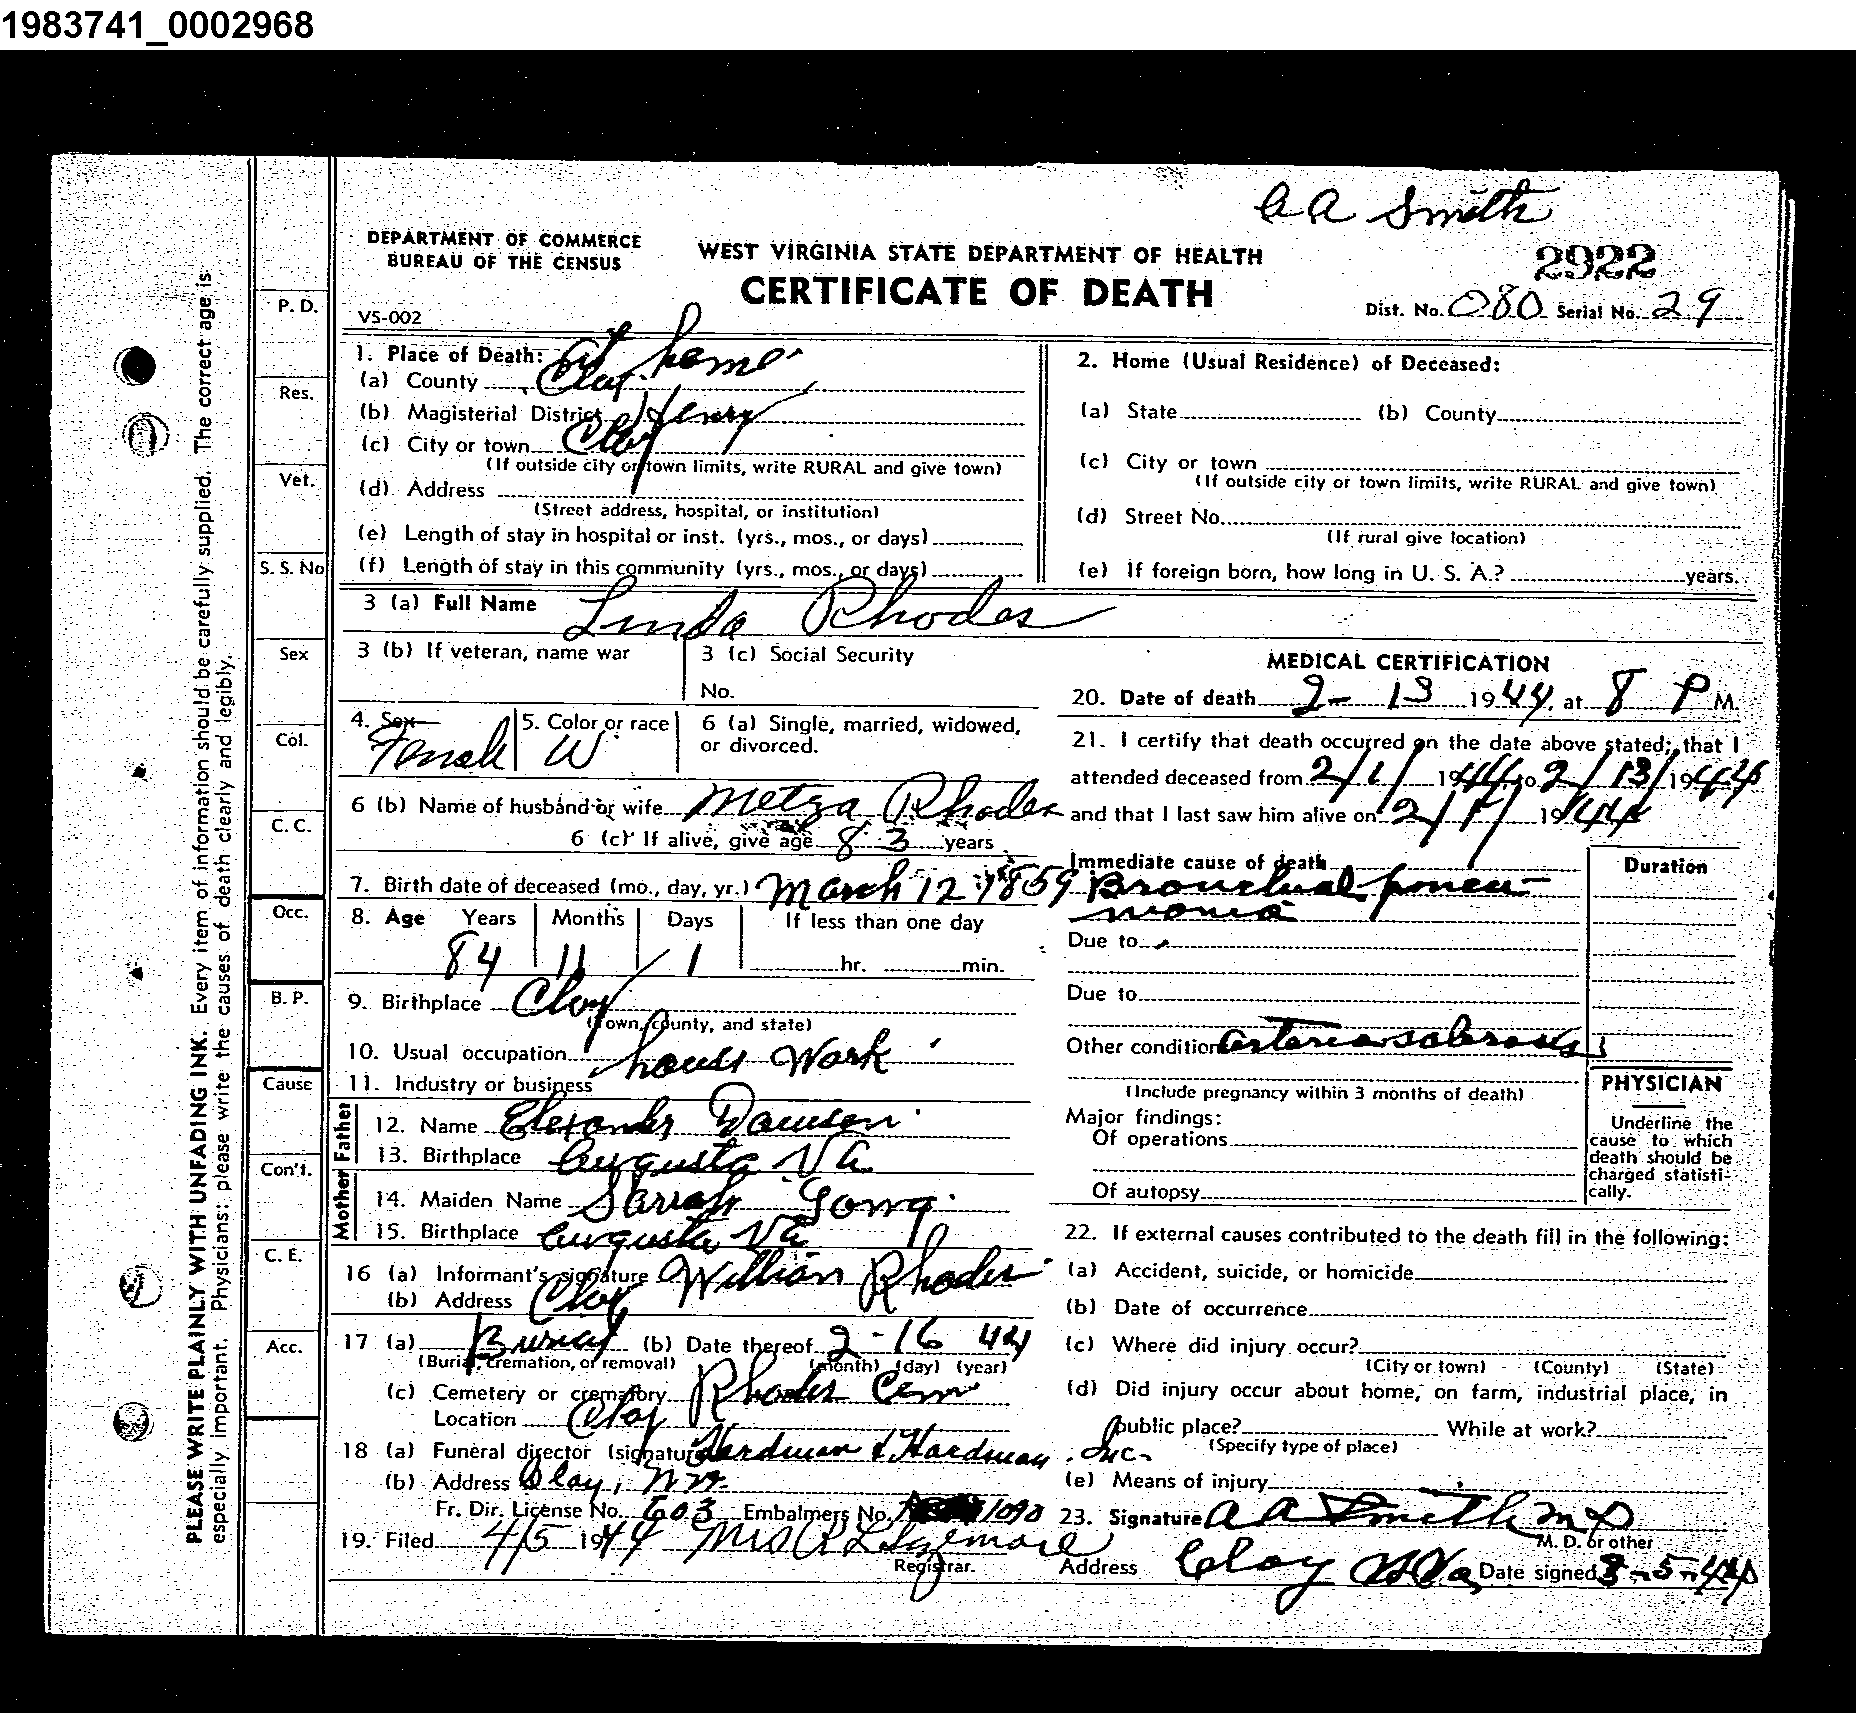 1983741_0002968
A A Smith
DEPARTMENT OF COMMERCE
BUREAU OF THE CENSUS
WEST VIRGINIA STATE DEPARTMENT OF HEALTH
2922
CERTIFICATE OF DEATH
Dist. No. 080 Serial No. 29
VS-002
PLEASE WRITE PLAINLY WITH UNFADING INK. Every item of information should be carefully supplied. The correct age is
especially important. Physicians: please write the causes of death clearly and legibly.
P. D.
Res.
Vet.
S. S. No
Sex
Col.
C. C.
Occ.
B. P.
Cause
Con't.
C. E.
Acc.
1. Place of Death: At home
(a) County Clay
(b) Magisterial District Henry
(c) City or town Clay
(If outside city or town limits, write RURAL and give town)
(d) Address
(Street address, hospital, or institution)
(e) Length of stay in hospital or inst. (yrs., mos., or days)
(f) Length of stay in this community (yrs., mos., or days)
2. Home (Usual Residence) of Deceased:
(a) State (b) County
(c) City or town
(If outside city or town limits, write RURAL and give town)
(d) Street No.
(If rural give location)
(e) If foreign born, how long in U. S. A.? years.
3 (a) Full Name Linda Rhodes
3 (b) If veteran, name war
3 (c) Social Security
No.
4. Sex Femal
5. Color or race W
6 (a) Single, married, widowed,
or divorced.
6 (b) Name of husband or wife Metza Rhodes
6 (c) If alive, give age 83 years
7. Birth date of deceased (mo., day, yr.) March 12 1859
8. Age Years Months Days If less than one day
84 11 1 hr. min.
9. Birthplace Clay
(Town, county, and state)
10. Usual occupation house Work
11. Industry or business
Father
12. Name Elexander Dawson
13. Birthplace Augusta Va
Mother
14. Maiden Name Sarrah
15. Birthplace Augusta Va
16 (a) Informant's signature William Rhodes
(b) Address Clay
17 (a) Burial (b) Date thereof 2-16 44
(Burial, cremation, or removal) (month) (day) (year)
(c) Cemetery or crematory Rhodes Cem
Location Clay
18 (a) Funeral director (signature) Hardman & Hardman, Inc.
(b) Address Clay, W.Va.
Fr. Dir. License No. 603 Embalmers No. 1090
19. Filed 4/5 1944 Mrs R L Sizemore
Registrar.
MEDICAL CERTIFICATION
20. Date of death 2-13 1944, at 8 P M.
21. I certify that death occurred on the date above stated; that I
attended deceased from 2/1/ 1944 to 2/13/ 1944
and that I last saw him alive on 2/1/ 1944
Immediate cause of death Duration
Bronchual pneu-
monia
Due to
Due to
Other condition arteriosclerosis
(Include pregnancy within 3 months of death)
Major findings:
Of operations
Of autopsy
PHYSICIAN
Underline the
cause to which
death should be
charged statisti-
cally.
22. If external causes contributed to the death fill in the following:
(a) Accident, suicide, or homicide
(b) Date of occurrence
(c) Where did injury occur?
(City or town) (County) (State)
(d) Did injury occur about home, on farm, industrial place, in
public place? While at work?
(Specify type of place)
(e) Means of injury
23. Signature A A Smith MD
M. D. or other
Address Clay W Va Date signed 3-5-44